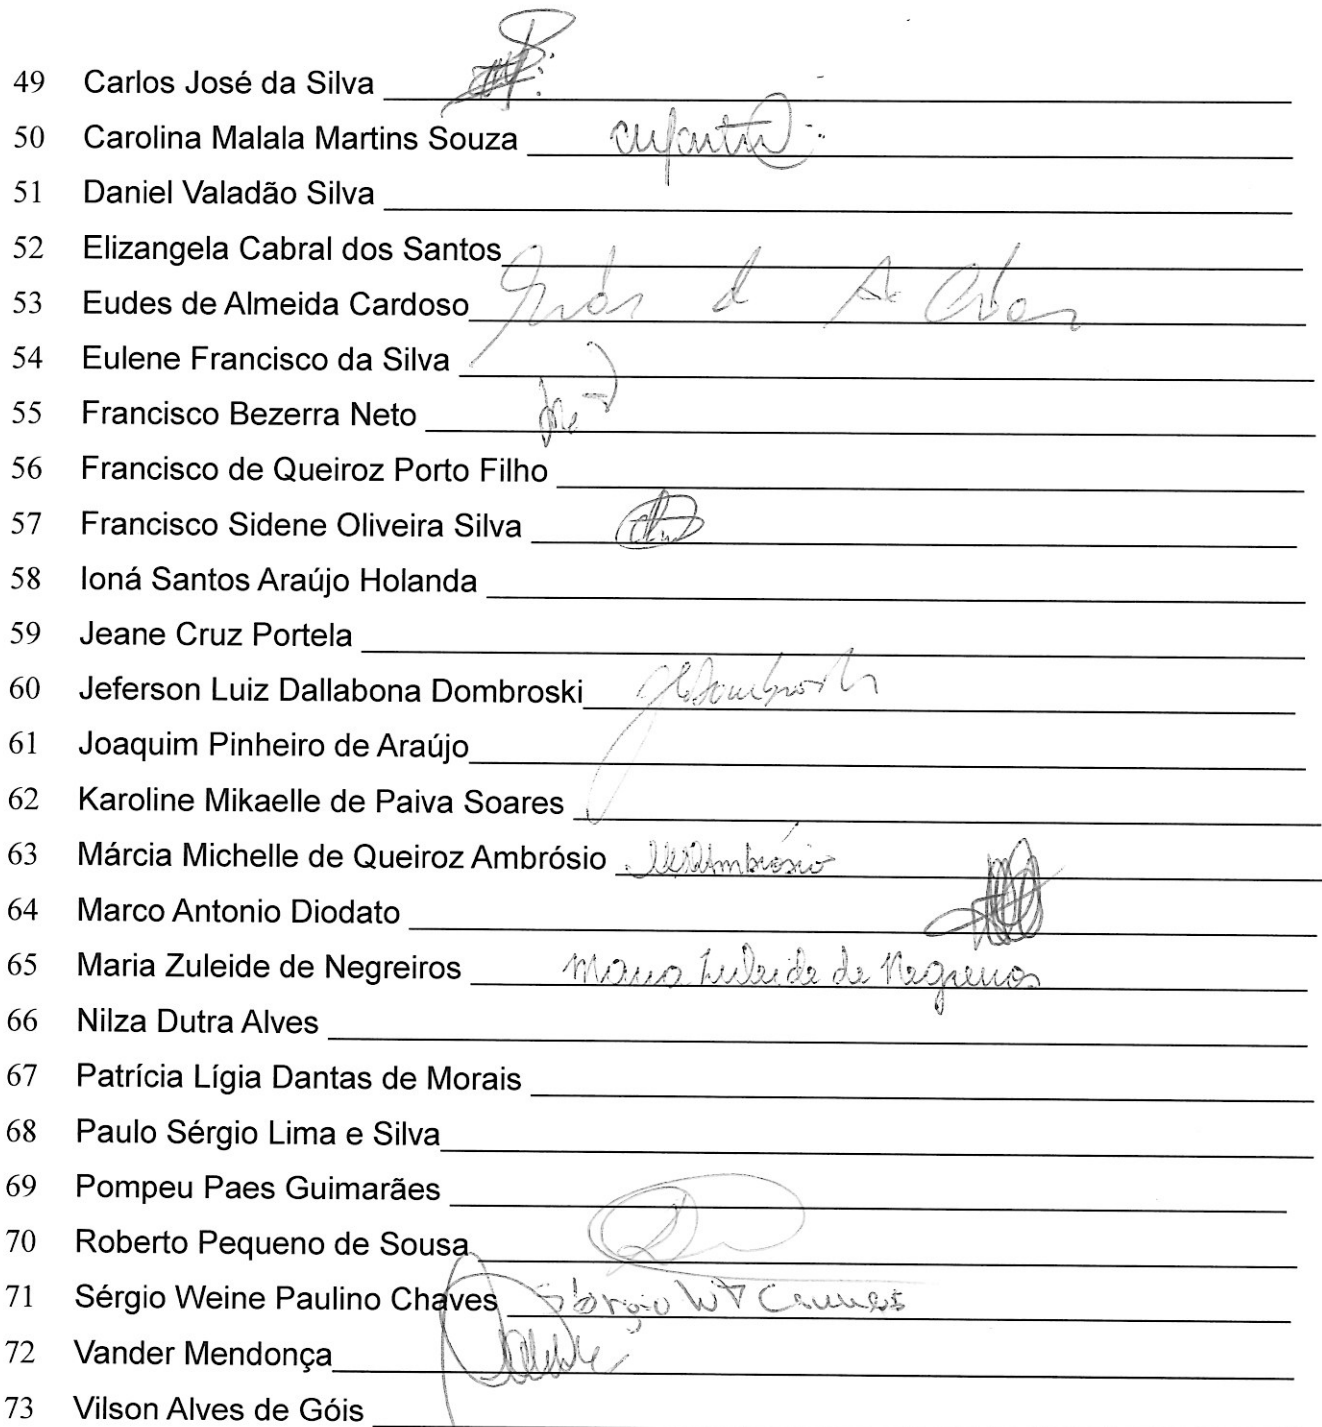 49 Carlos José da Silva
50 Carolina Malala Martins Souza
51 Daniel Valadão Silva
52 Elizangela Cabral dos Santos
53 Eudes de Almeida Cardoso
54 Eulene Francisco da Silva
55 Francisco Bezerra Neto
56 Francisco de Queiroz Porto Filho
57 Francisco Sidene Oliveira Silva
58 Ioná Santos Araújo Holanda
59 Jeane Cruz Portela
60 Jeferson Luiz Dallabona Dombroski
61 Joaquim Pinheiro de Araújo
62 Karoline Mikaelle de Paiva Soares
63 Márcia Michelle de Queiroz Ambrósio
64 Marco Antonio Diodato
65 Maria Zuleide de Negreiros Maria Zuleide de Negreiros
66 Nilza Dutra Alves
67 Patrícia Lígia Dantas de Morais
68 Paulo Sérgio Lima e Silva
69 Pompeu Paes Guimarães
70 Roberto Pequeno de Sousa
71 Sérgio Weine Paulino Chaves
72 Vander Mendonça
73 Vilson Alves de Góis